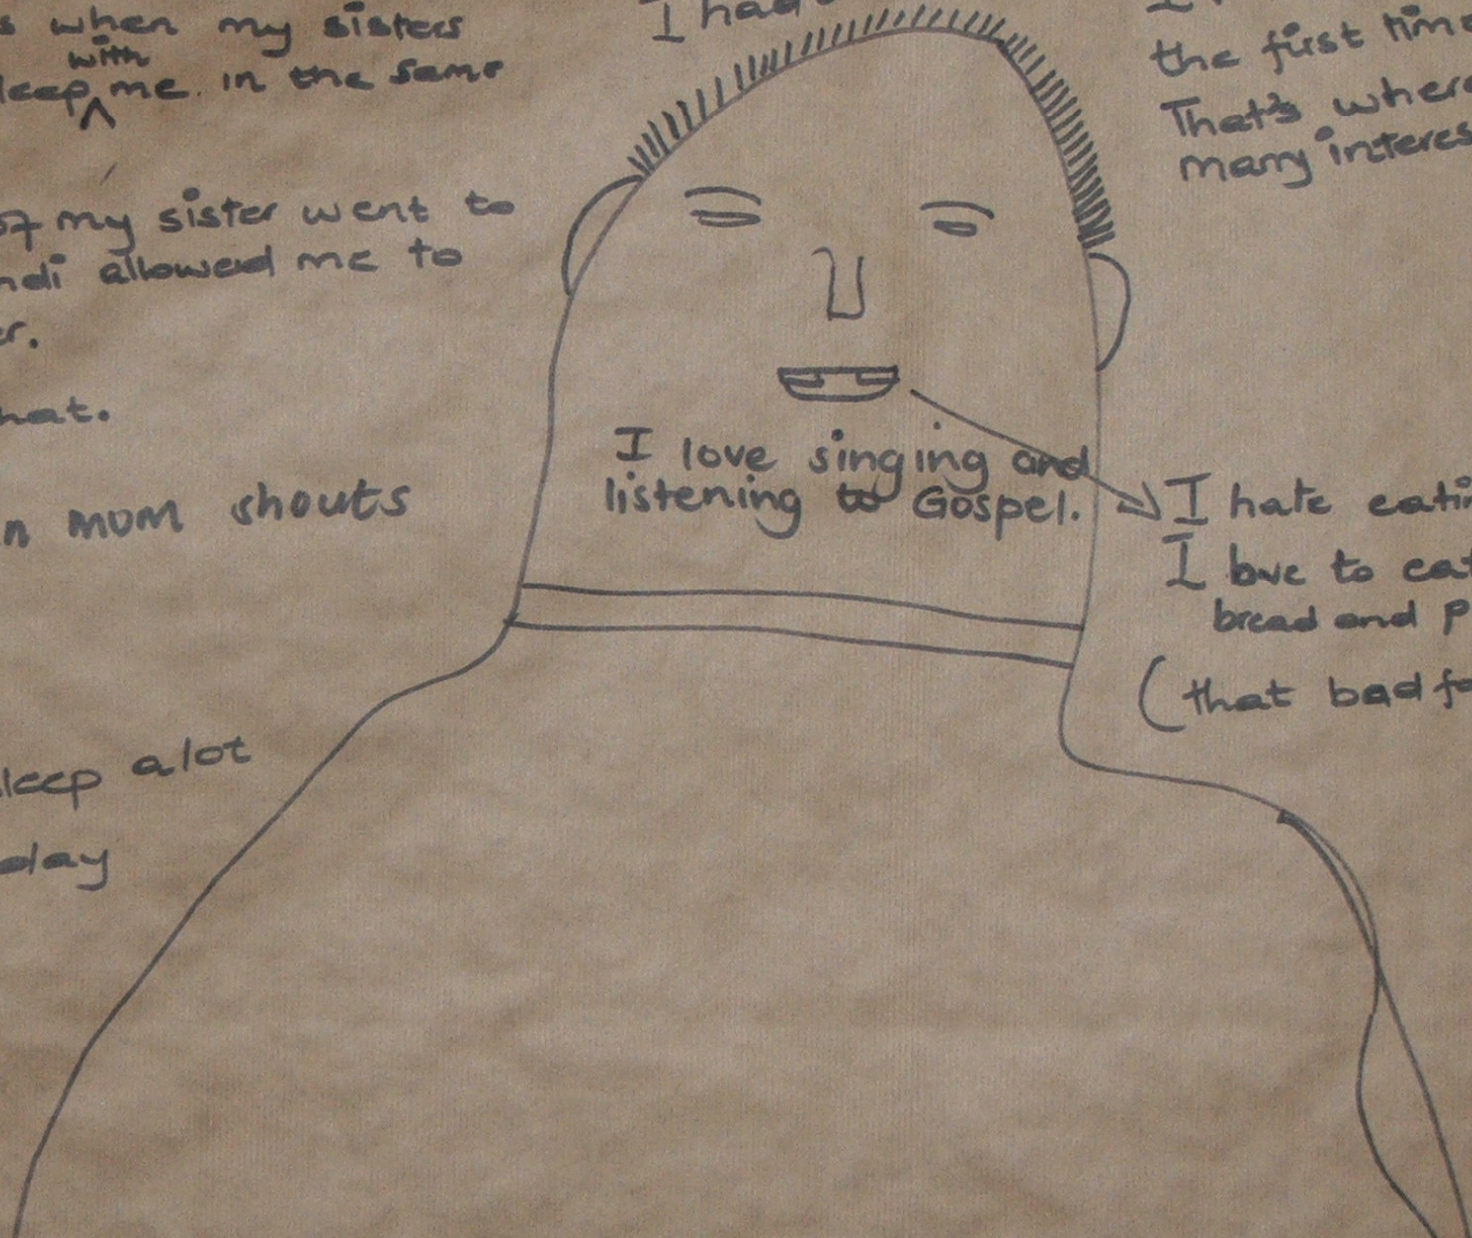 when my sisters
with
me in the same
my sister went to
allowed me to
hat.
mom shouts
a lot
day
I had
the first time
That's where
many
I love singing and
listening to Gospel.
I hate
I love to eat
bread and
(that bad